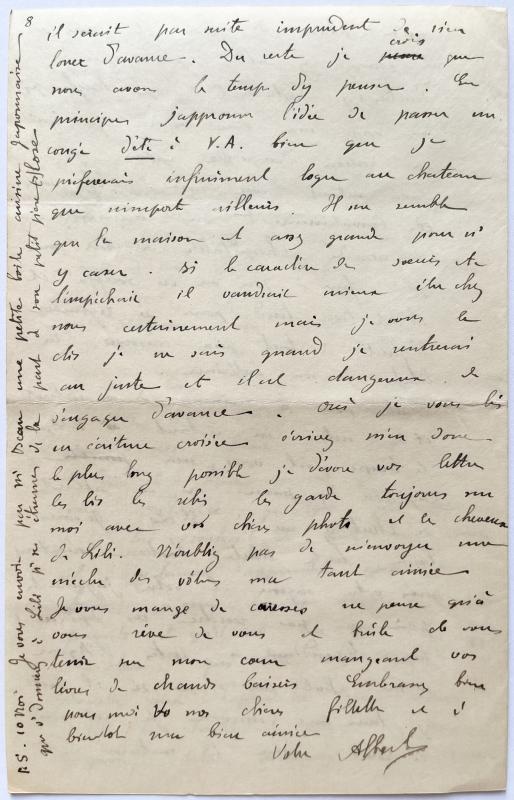 8
il serait par suite imprudent de rien
louer d'avance. Du reste je crois que
nous avons le temps d'y penser. En
principes j'approuve l'idée de passer un
congé d'été à V.A. bien que je
préfererais infiniment loger au chateau
que n'importe ailleurs. Il me semble
que la maison est assez grande pour s'
y caser. Si le caractère des soeurs
l'empéchait il vaudrait mieux être chez
nous certainement mais je vous le
dis je ne sais quand je rentrerais
au juste et il est dangereux de
s'engager d'avance. Oui je vous lis
en écriture croisée écrivez m'en donc
le plus long possible je dévore vos lettres
les lis les relis les garde toujours sur
moi avec vos chères photo et les cheveux
de Lili. N'oubliez pas de m'envoyer une
mèche des vôtres ma tant aimée
Je vous mange de caresses ne pense qu'à
vous rêve de vous et brûle de vous
tenir sur mon coeur mangeant vos
lèvres de chauds baisers Embrassez bien
pour moi nos chères fillette et à
bientôt ma bien aimée
Votre Albert
P.S. 10 Nov Je vous envoie par mi une petite boite cuisine japonnaise
que v. donnerez à Lili de la part de son petit père